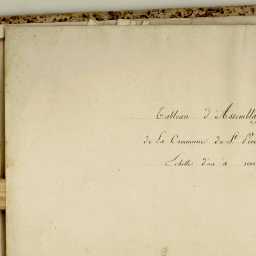 Tableau d'Assembla
de la Commune de St
Echelle d'un à